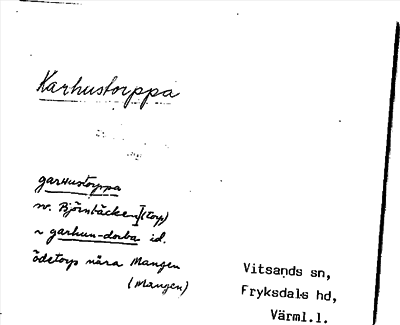 Karhustorppa
garhustorppa
sv. Björnbäcken I (torp)
~ garhun-dorba id.
ödetorp nära Mangen
(Mangen)
Vitsands sn,
Fryksdals hd,
Värml.l.